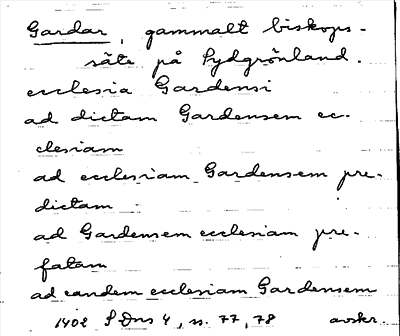 Gardar, gammalt biskops-
säte på Sydgrönland.
ecclesia Gardensi
ad dictam Gardensem ec-
clesiam
ad ecclesiam Gardensem pre-
dictam
ad Gardensem ecclesiam pre-
fatam
ad eandem ecclesiam Gardensem
1402 SDns 4, s. 77, 78 avskr.